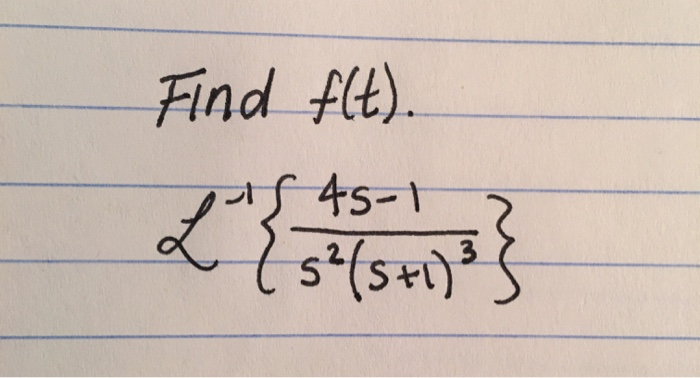 Find f(t).
ℒ⁻¹{ (4s-1) / (s²(s+1)³) }